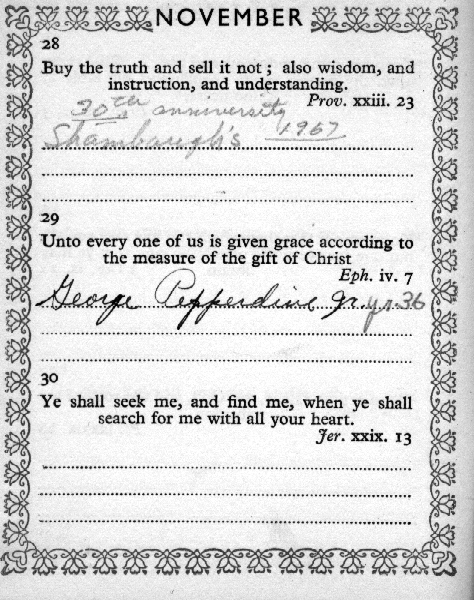 NOVEMBER
28
Buy the truth and sell it not ; also wisdom, and
instruction, and understanding.
Prov. xxiii. 23
30th anniversity
Shambaugh's 1967
29
Unto every one of us is given grace according to
the measure of the gift of Christ
Eph. iv. 7
George Pepperdine Jr. yr. 36
30
Ye shall seek me, and find me, when ye shall
search for me with all your heart.
Jer. xxix. 13